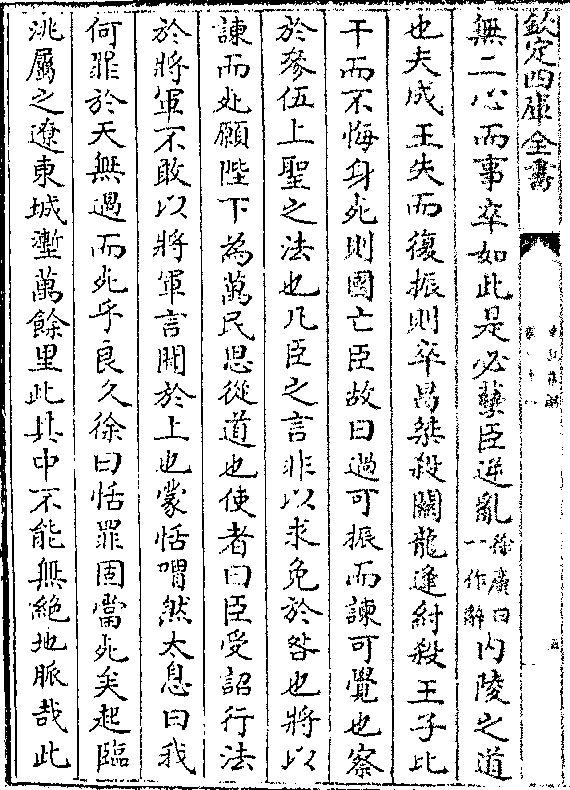 欽定四庫全書
無二心而事卒如此是必孽臣逆亂徐廣曰一作辭内陵之道
也夫成王失而復振則卒昌桀殺關龍逢紂殺王子比
干而不悔身死則國亡臣故曰過可振而諫可覺也察
於參伍上聖之法也凡臣之言非以求免於咎也將以
諫而死願陛下為萬民思從道也使者曰臣受詔行法
於將軍不敢以將軍言聞於上也蒙恬喟然太息曰我
何罪於天無過而死乎良久徐曰恬罪固當死矣起臨
洮屬之遼東城壍萬餘里此其中不能無絶地脈哉此